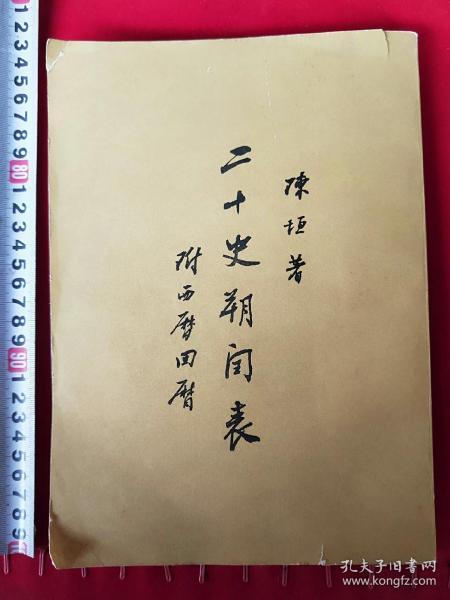 陳垣著
二十史朔闰表
附西曆回曆
1 2 3 4 5 6 7 8 9 80 1 2 3 4 5 6 7 8 9 90 1 2 3 4 5 6
孔夫子旧书网
www.kongfz.com